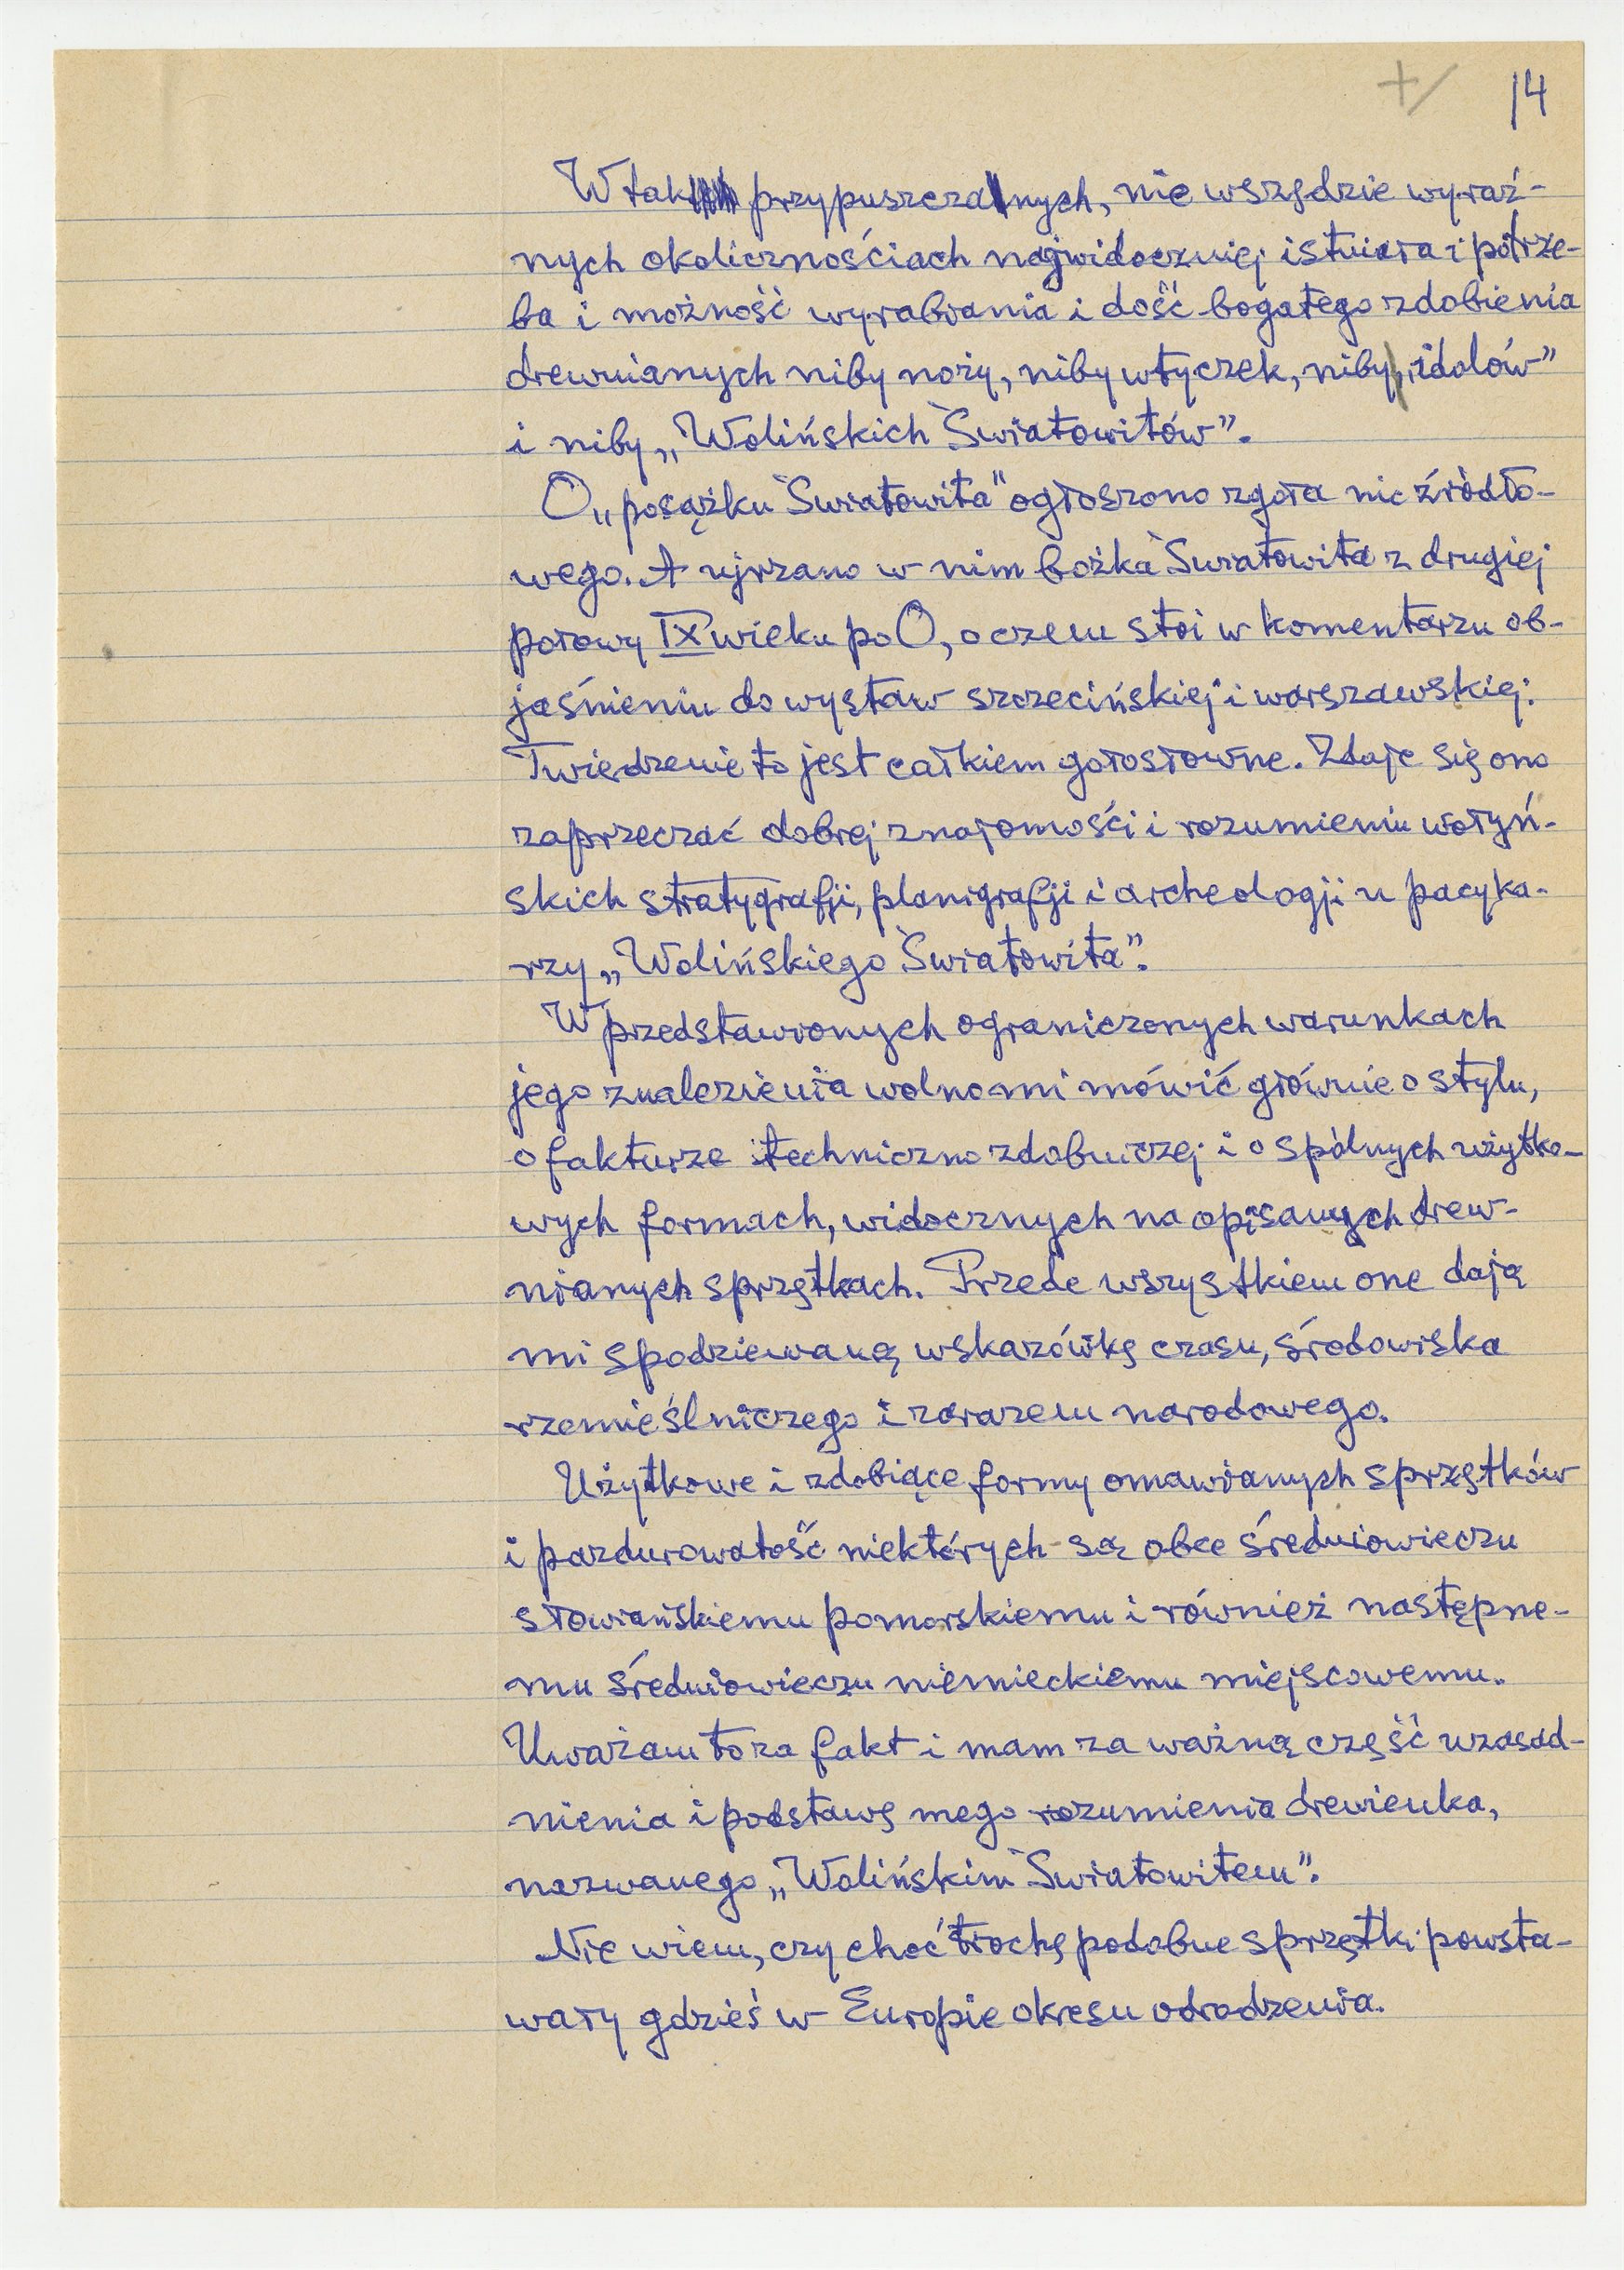 +/ 14
W tak przypuszczalnych, nie wszędzie wyraź-
nych okolicznościach najwidoczniej istniała i potrze-
ba i możność wyrabiania i dość bogatego zdobienia
drewnianych niby noży, niby wtyczek, niby „idolów”
i niby „Wolińskich Światowitów”.
O „posążku Światowita” ogłoszono zgoła nic źródło-
wego. A ujrzano w nim bożka Światowita z drugiej
połowy IX wieku po O, o czem stoi w komentarzu ob-
jaśnieniu do wystaw szczecińskiej i warszawskiej.
Twierdzenie to jest całkiem gołosłowne. Zdaje się ono
zaprzeczać dobrej znajomości i rozumieniu wołyń-
skich stratygrafji, planigrafji i archeologji u pacyka-
rzy „Wolińskiego Światowita”.
W przedstawionych ograniczonych warunkach
jego znalezienia wolno mi mówić głównie o stylu,
o fakturze techniczno zdobniczej i o spólnych użytko-
wych formach, widocznych na opisanych drew-
nianych sprzętkach. Przede wszystkiem one dają
mi spodziewaną wskazówkę czasu, środowiska
rzemieślniczego i zarazem narodowego.
Użytkowe i zdobiące formy omawianych sprzętków
i pazdurowatość niektórych są obce średniowieczu
słowiańskiemu pomorskiemu i również następne-
mu średniowieczu niemieckiemu miejscowemu.
Uważam to za fakt i mam za ważną część uzasad-
nienia i podstawę mego rozumienia drewienka,
nazwanego „Wolińskim Światowitem”.
Nie wiem, czy choć trochę podobne sprzętki powsta-
wały gdzieś w Europie okresu odrodzenia.